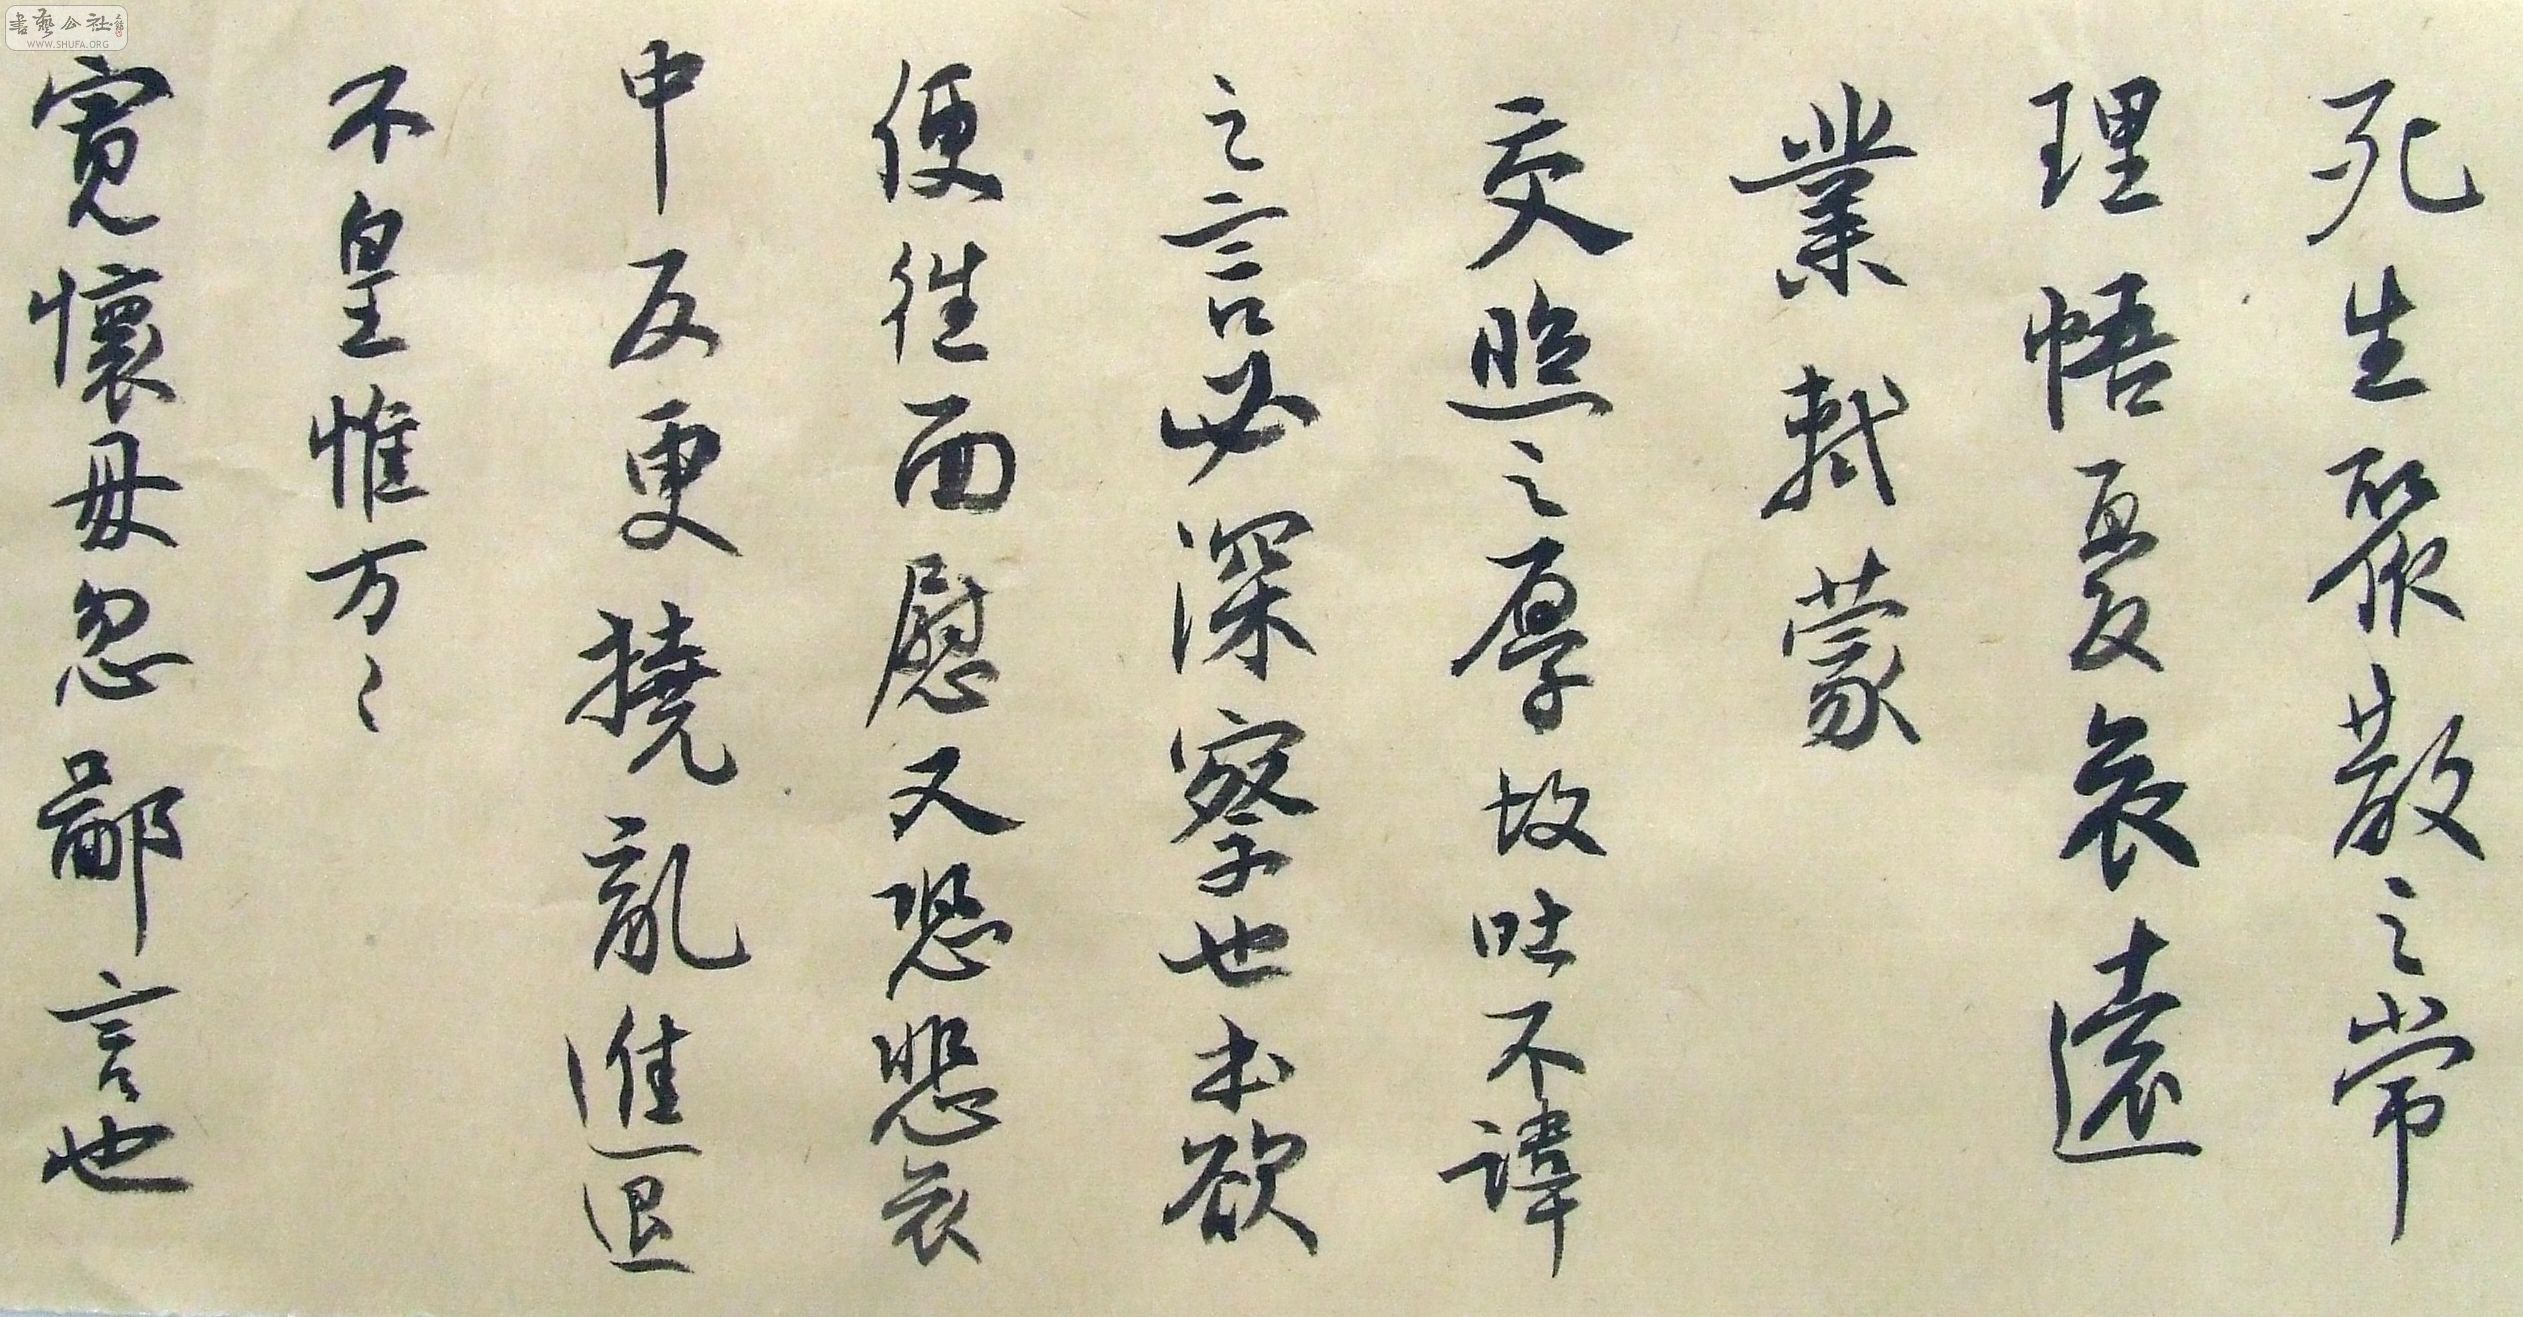 死生聚散之常
理悟憂哀遠
業軾蒙
交照之厚故吐不諱
之言必深察也本欲
便往面慰又恐悲哀
中反更撓亂進退
不皇惟万〻
寬懷毋忽鄙言也
書藝公社
WWW.SHUFA.ORG